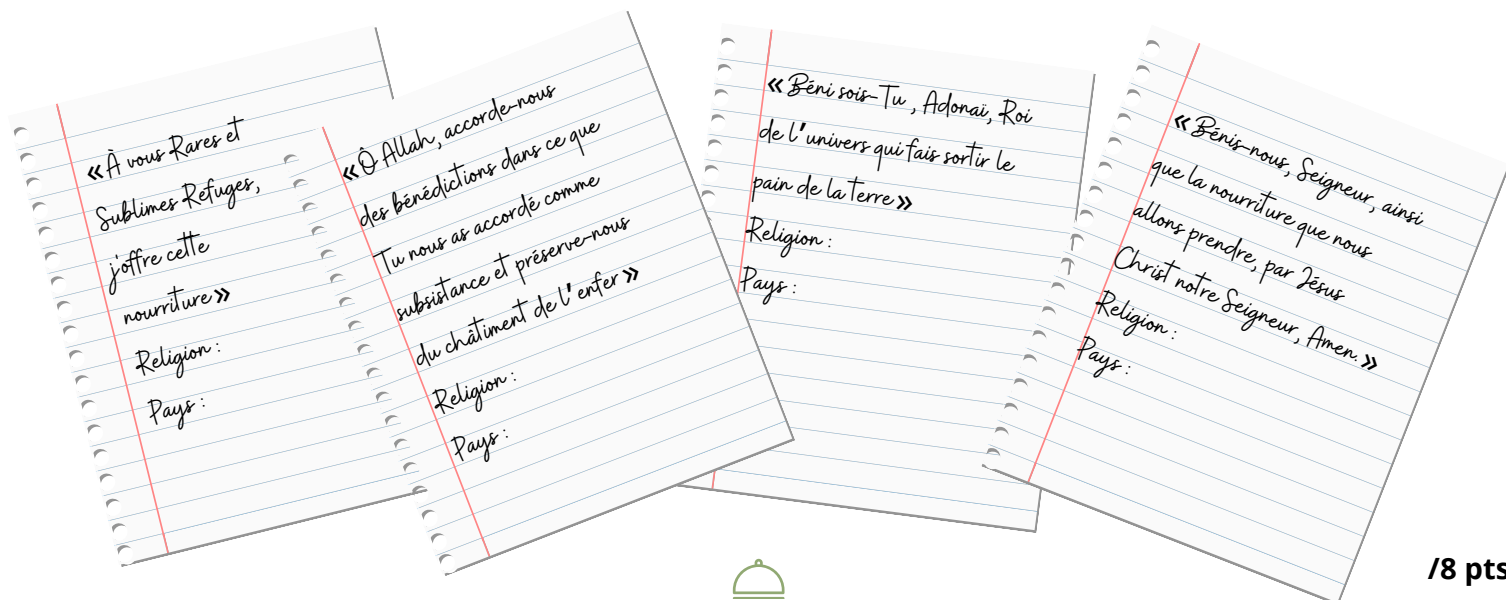 «À vous Rares et
Sublimes Refuges,
j'offre cette
nourriture»
Religion :
Pays :
«Ô Allah, accorde-nous
des bénédictions dans ce que
Tu nous as accordé comme
subsistance et préserve-nous
du châtiment de l'enfer»
Religion :
Pays :
«Béni sois-Tu , Adonaï, Roi
de l'univers qui fais sortir le
pain de la terre»
Religion :
Pays :
«Bénis-nous, Seigneur, ainsi
que la nourriture que nous
allons prendre, par Jésus
Christ notre Seigneur, Amen.»
Religion :
Pays :
/8 pts